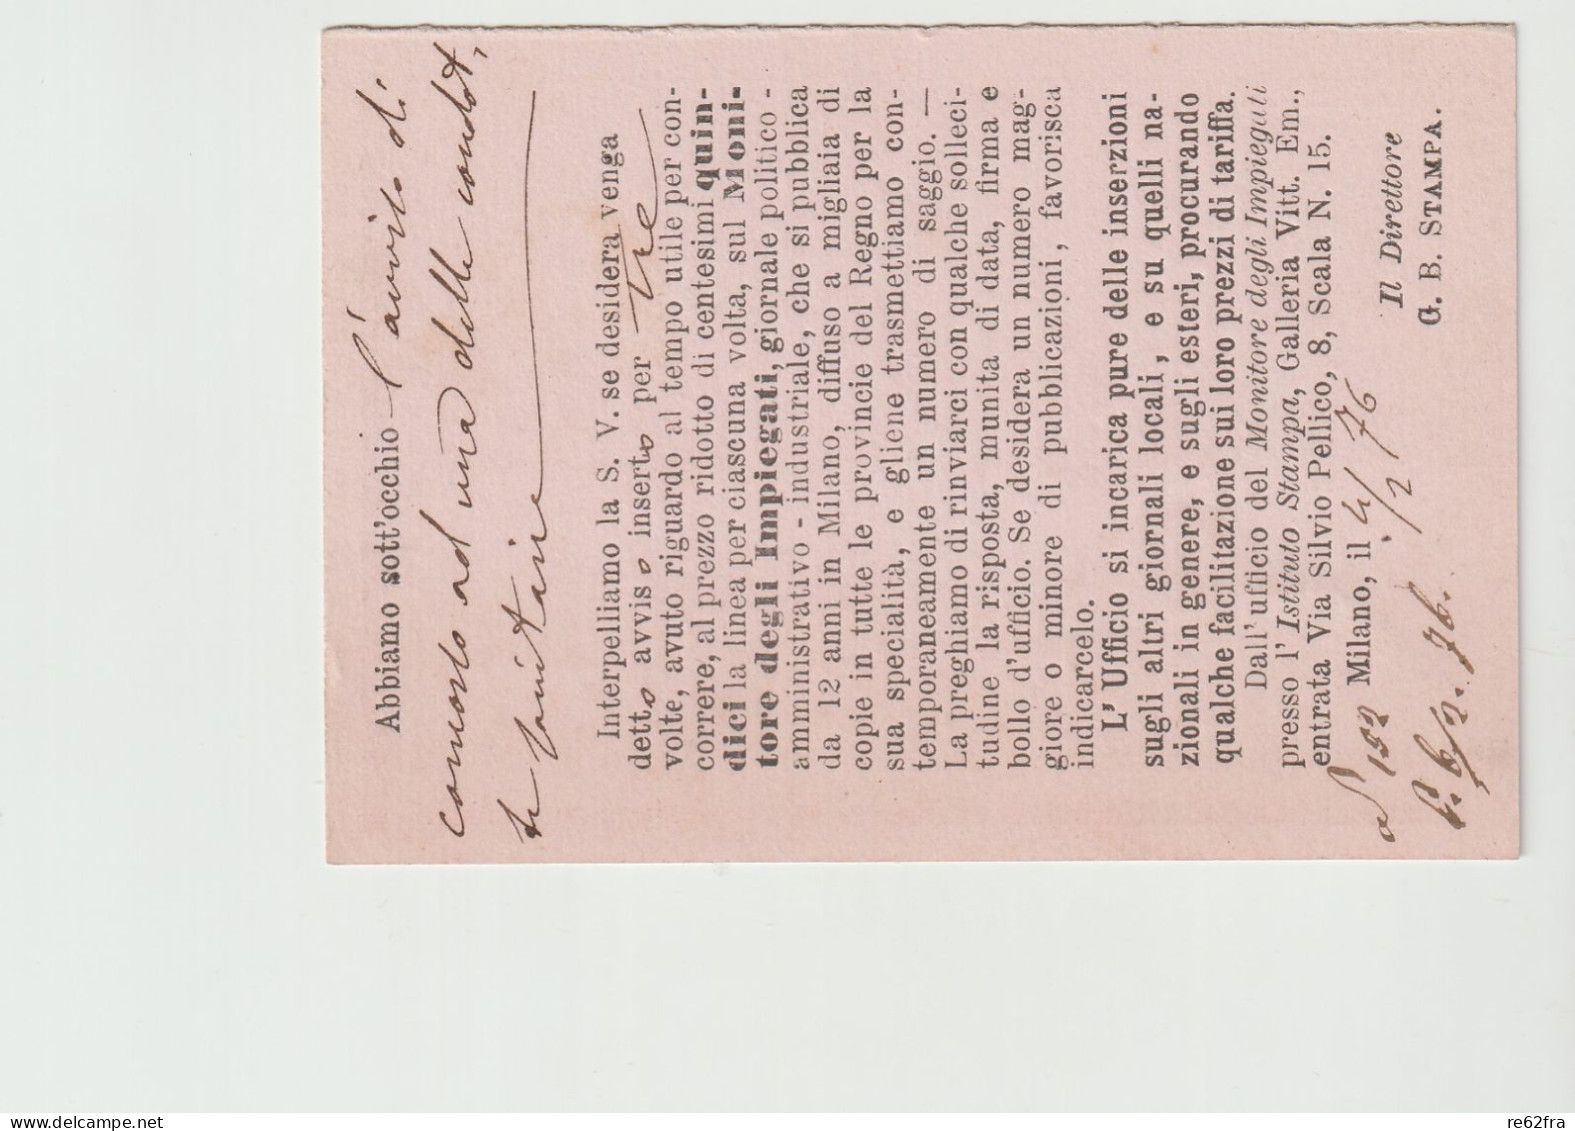 Abbiamo sott'occhio l'avviso di
concorso ad una delle condot,
te sanitarie
Interpelliamo la S. V. se desidera venga
detto avviso inserto per tre
volte, avuto riguardo al tempo utile per con-
correre, al prezzo ridotto di centesimi quin-
dici la linea per ciascuna volta, sul Moni-
tore degli Impiegati, giornale politico -
amministrativo - industriale, che si pubblica
da 12 anni in Milano, diffuso a migliaia di
copie in tutte le provincie del Regno per la
sua specialità, e gliene trasmettiamo con-
temporaneamente un numero di saggio. —
La preghiamo di rinviarci con qualche solleci-
tudine la risposta, munita di data, firma e
bollo d'ufficio. Se desidera un numero mag-
giore o minore di pubblicazioni, favorisca
indicarcelo.
L'Ufficio si incarica pure delle inserzioni
sugli altri giornali locali, e su quelli na-
zionali in genere, e sugli esteri, procurando
qualche facilitazione sui loro prezzi di tariffa.
Dall'ufficio del Monitore degli Impiegati
presso l'Istituto Stampa, Galleria Vitt. Em.,
entrata Via Silvio Pellico, 8, Scala N. 15.
Milano, il 4/2 76
Il Direttore
G. B. STAMPA.
152
6/2. 76.
www.delcampe.net
re62fra